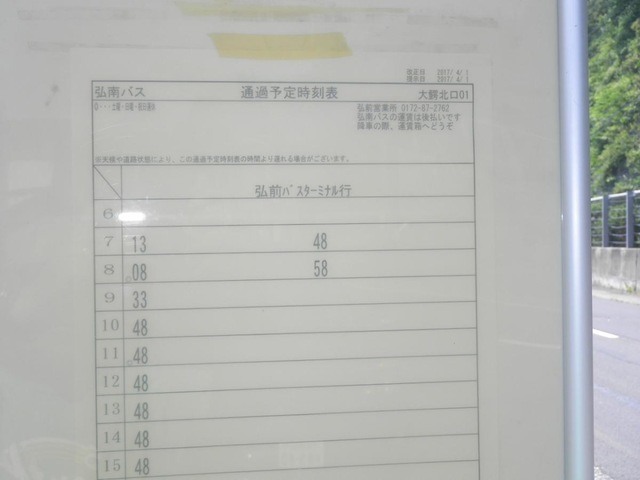 改正日 2017/ 4/ 1
2017/ 4/ 1
弘南バス 通過予定時刻表 大鰐北口01
弘前営業所 0172-87-2762
弘南バスの運賃は後払いです
降車の際、運賃箱へどうぞ
※天候や道路状態により、この通過予定時刻表の時間より遅れる場合がございます。
弘前ﾊﾞｽﾀｰﾐﾅﾙ行
6
7 13 48
8 08 58
9 33
10 48
11 48
12 48
13 48
14 48
15 48